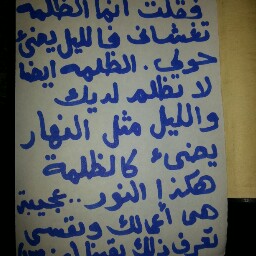 فقلت انما الظلمه
تغشانى فالليل يضئ
حولي. الظلمه ايضا
لا تظلم لديك
والليل مثل النهار
يضىء كالظلمة
هكذا النور.. عجيبة
هى أعمالك ونفسى
تعرف ذلك يقينا